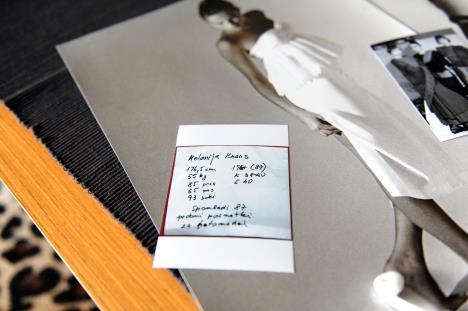 Melanija Knavs
176,5 cm 17 let (87)
55 kg K 38-40
85 prsi Č 40
65 pas
93 boki
Spomladi 87
posnetki
za fotomodel